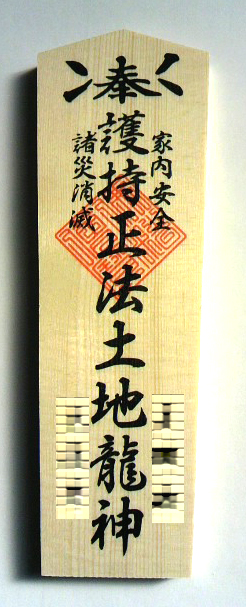 奉
護持正法土地龍神
家内安全
諸災消滅